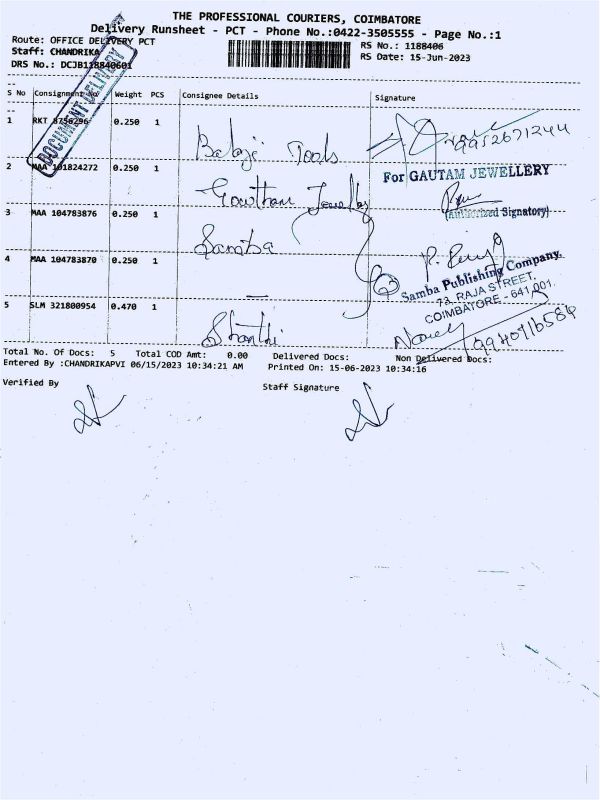 THE PROFESSIONAL COURIERS, COIMBATORE
Delivery Runsheet - PCT - Phone No.:0422-3505555 - Page No.:1
Route: OFFICE DELIVERY PCT
RS No.: 1188406
Staff: CHANDRIKA
RS Date: 15-Jun-2023
DRS No.: DCJB118840601
DOCUMENT DELIVERY
S No Consignment No Weight PCS Consignee Details Signature
1 RKT 8756296 0.250 1 Balaji Tools
9952671244
2 MAA 101824272 0.250 1 Gowtham Jewellry
For GAUTAM JEWELLERY
(Authorized Signatory)
3 MAA 104783876 0.250 1 Samba
4 MAA 104783870 0.250 1
Samba Publishing Company,
72, RAJA STREET,
COIMBATORE - 641 001.
5 SLM 321800954 0.470 1 Shanthi
Total No. Of Docs: 5 Total COD Amt: 0.00 Delivered Docs: Non Delivered Docs:
Entered By :CHANDRIKAPVI 06/15/2023 10:34:21 AM Printed On: 15-06-2023 10:34:16
Verified By Staff Signature